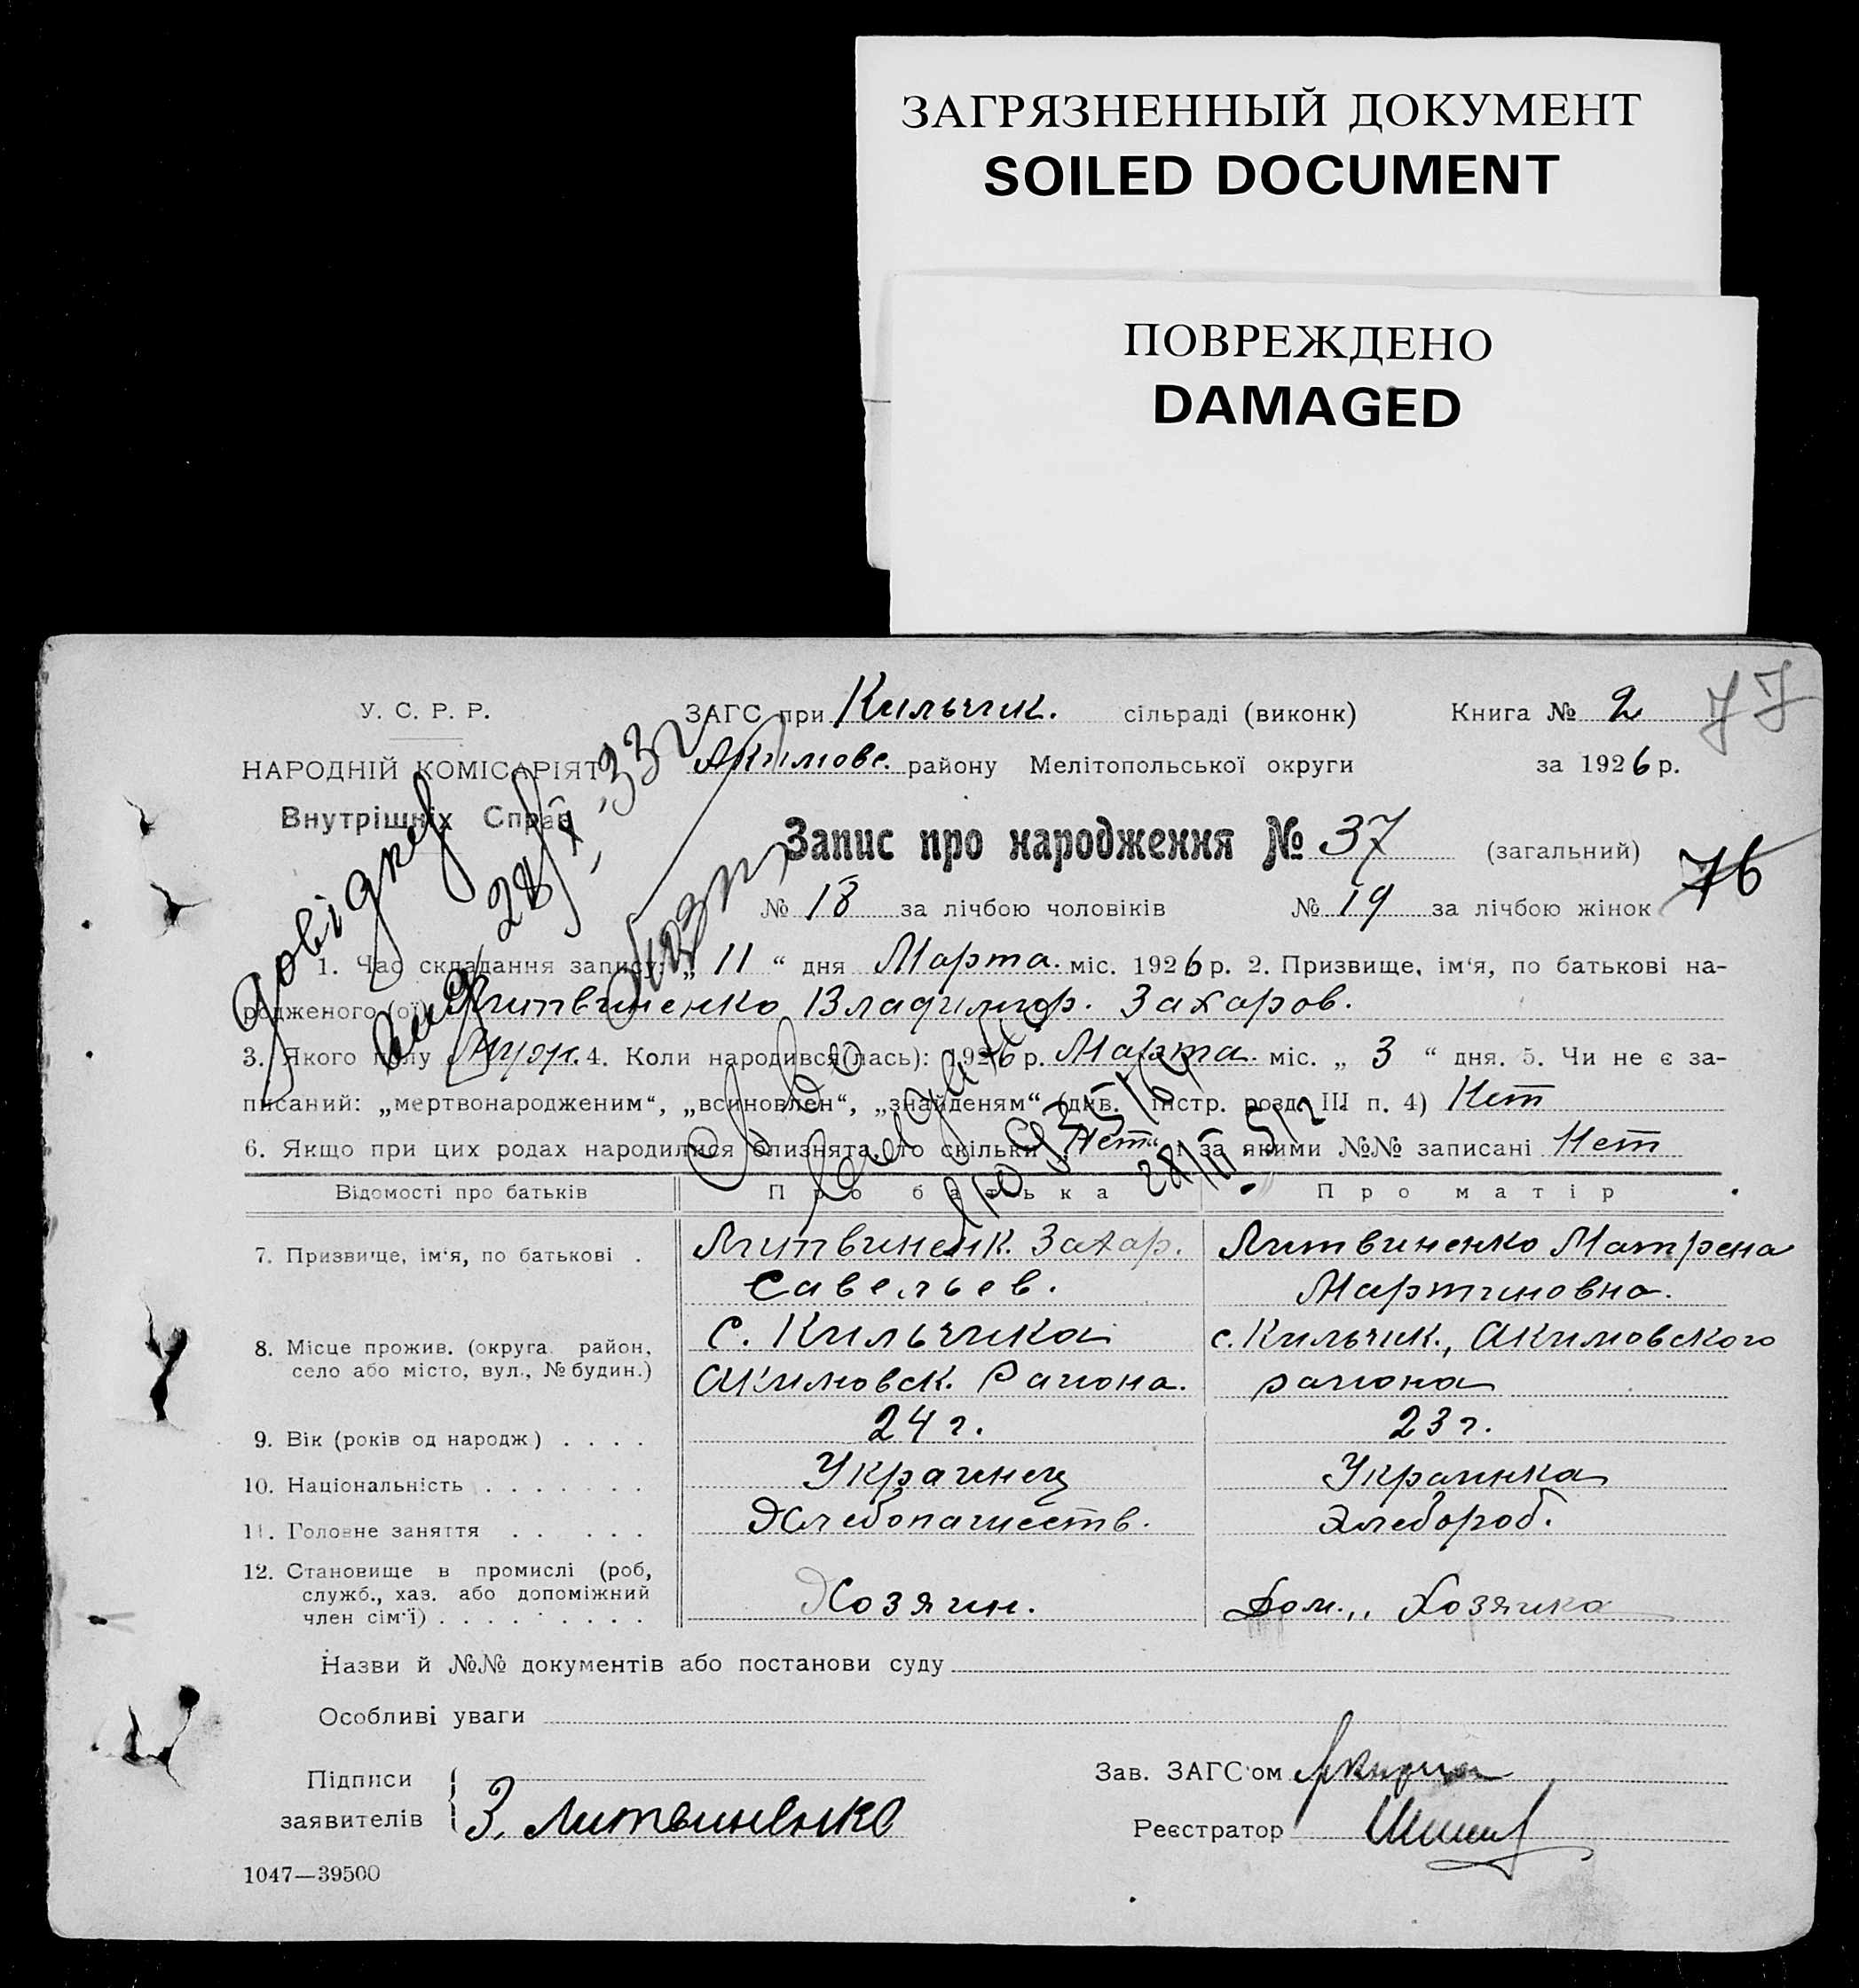 ЗАГРЯЗНЕННЫЙ ДОКУМЕНТ
SOILED DOCUMENT
ПОВРЕЖДЕНО
DAMAGED
77
У. С. Р. Р.
ЗАГС при Кильчик. сільраді (виконк) Книга № 2
НАРОДНІЙ КОМІСАРІЯТ
Акимовс. району Мелітопольської округи за 1926 р.
Внутрішніх Справ
Запис про народження № 37 (загальний)
76
№ 18 за лічбою чоловіків № 19 за лічбою жінок
1. Час складання запису: „ 11 “ дня Марта. міс. 1926 р. 2. Призвище, ім‘я, по батькові на-
родженого (ої) Литвиненко Владимир. Захаров.
3. Якого полу Муж. 4. Коли народився(лась): 1926 р. Марта. міс. „ 3 “ дня. 5. Чи не є за-
писаний: „мертвонародженим“, „всиновлен“, „знайденям“ (див. інстр. розд. III п. 4) Нет
6. Якщо при цих родах народилися близнята, то скільки „Нет“ і за якими №№ записані Нет
Відомості про батьків Про батька Про матір
7. Призвище, ім‘я, по батькові . Литвиненк. Захар. Литвиненко Матрена
Савельев. Мартиновна.
8. Місце прожив. (округа район, с. Кильчика с. Кильчик., Акимовского
село або місто, вул., № будин.) Акимовск. Района. района
9. Вік (років од народж) . . . . 24 г. 23 г.
10. Національність . . . . . . . Украинец Украинка
11. Головне заняття . . . . . . Хлебопашеств. Хлебороб.
12. Становище в промислі (роб, Хозяин. Дом.,, Хозяйка
служб., хаз. або допоміжний
член сім‘ї) . . . . . . . . .
Назви й №№ документів або постанови суду
Особливі уваги
Підписи
заявителів З. Литвиненко
Зав. ЗАГС‘ом
Реєстратор
1047—39500